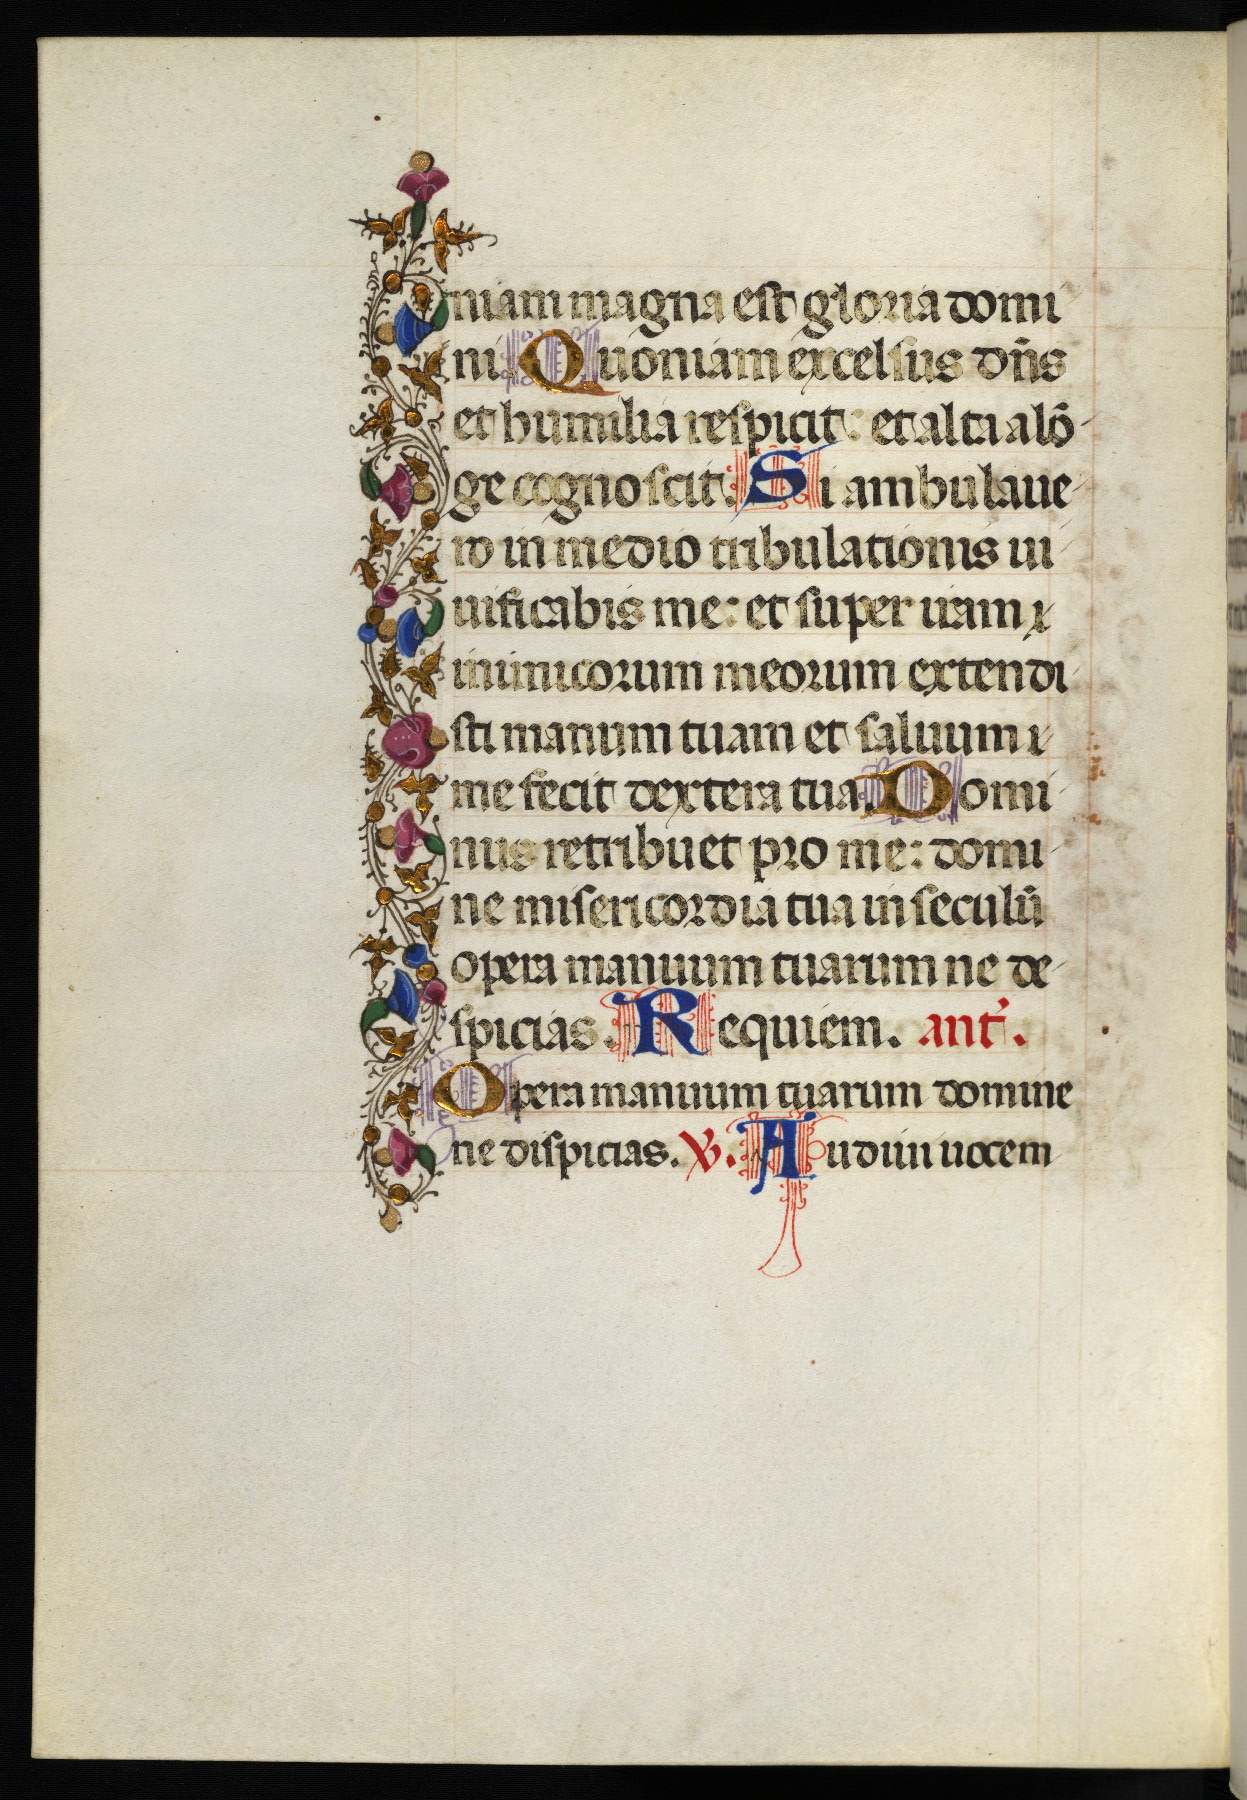 niam magna est gloria domi
ni. Quoniam excelsus dn̄s
et humilia respicit: et alta alō
ge cognoscit. Si ambulaue
ro in medio tribulationis ui
uificabis me: et super iram
inimicorum meorum extendi
sti manum tuam et saluum
me fecit dextera tua. Domi
nus retribuet pro me: domi
ne misericordia tua in seculū
opera manuum tuarum ne de
spicias. Requiem. ant̄.
Opera manuum tuarum domine
ne dispicias. V. Audiui uocem